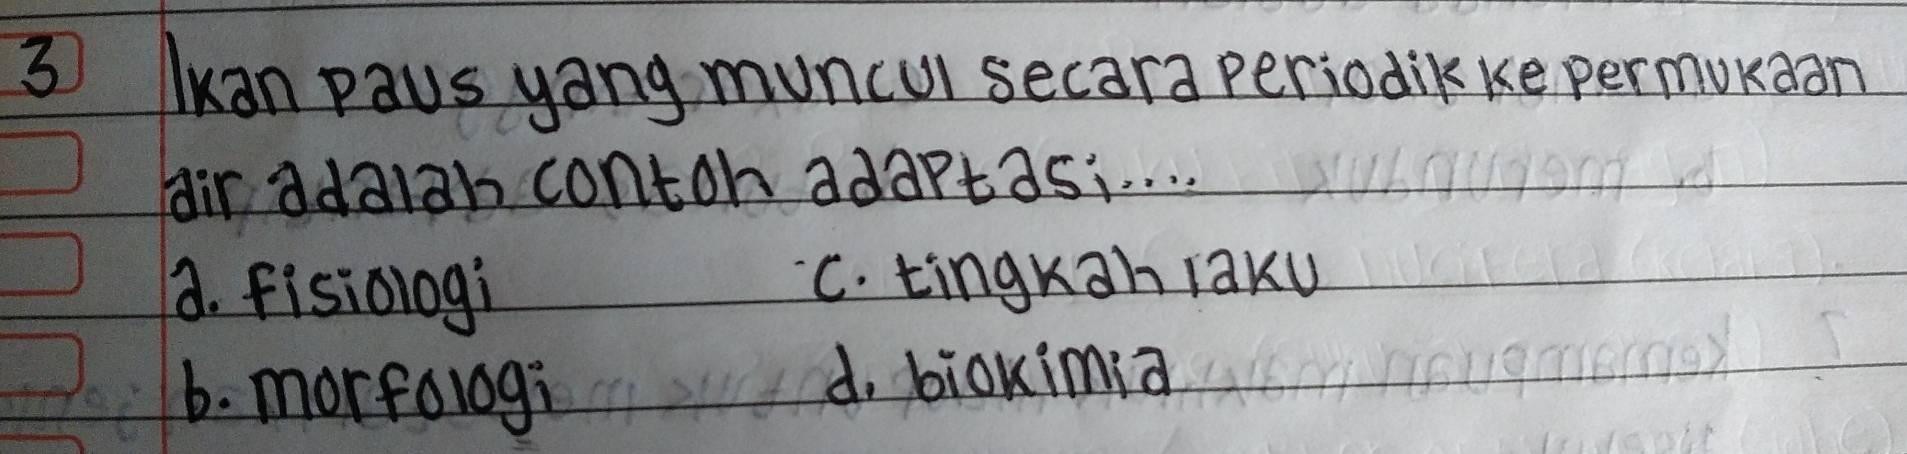 3 Ikan paus yang muncul secara periodik ke permukaan
air adalah contoh adaptasi....
a. fisiologi c. tingkah laku
b. morfologi d. biokimia